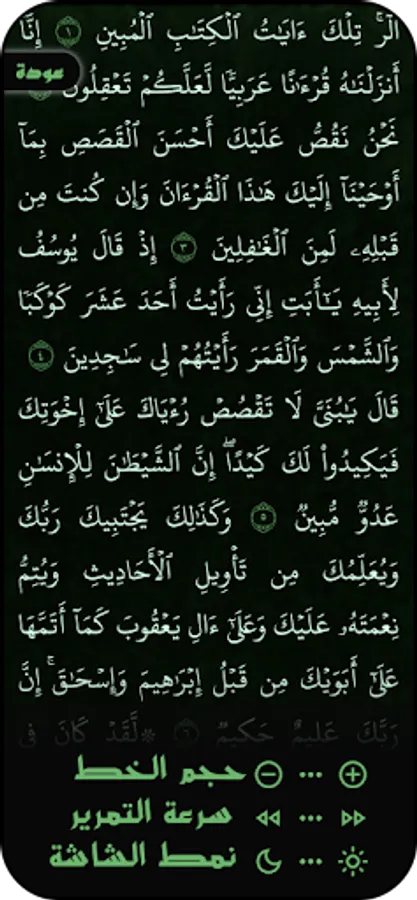 الٓرۚ تِلْكَ ءَايَٰتُ ٱلْكِتَٰبِ ٱلْمُبِينِ ١ إِنَّآ
عودة
أَنزَلْنَٰهُ قُرْءَٰنًا عَرَبِيًّا لَّعَلَّكُمْ تَعْقِلُونَ
نَحْنُ نَقُصُّ عَلَيْكَ أَحْسَنَ ٱلْقَصَصِ بِمَآ
أَوْحَيْنَآ إِلَيْكَ هَٰذَا ٱلْقُرْءَانَ وَإِن كُنتَ مِن
قَبْلِهِۦ لَمِنَ ٱلْغَٰفِلِينَ ٣ إِذْ قَالَ يُوسُفُ
لِأَبِيهِ يَٰٓأَبَتِ إِنِّى رَأَيْتُ أَحَدَ عَشَرَ كَوْكَبًا
وَٱلشَّمْسَ وَٱلْقَمَرَ رَأَيْتُهُمْ لِى سَٰجِدِينَ ٤
قَالَ يَٰبُنَىَّ لَا تَقْصُصْ رُءْيَاكَ عَلَىٰٓ إِخْوَتِكَ
فَيَكِيدُوا۟ لَكَ كَيْدًاۖ إِنَّ ٱلشَّيْطَٰنَ لِلْإِنسَٰنِ
عَدُوٌّ مُّبِينٌ ٥ وَكَذَٰلِكَ يَجْتَبِيكَ رَبُّكَ
وَيُعَلِّمُكَ مِن تَأْوِيلِ ٱلْأَحَادِيثِ وَيُتِمُّ
نِعْمَتَهُۥ عَلَيْكَ وَعَلَىٰٓ ءَالِ يَعْقُوبَ كَمَآ أَتَمَّهَا
عَلَىٰٓ أَبَوَيْكَ مِن قَبْلُ إِبْرَٰهِيمَ وَإِسْحَٰقَۚ إِنَّ
رَبَّكَ عَلِيمٌ حَكِيمٌ ٦ ۞لَّقَدْ كَانَ فِى
حجم الخط
سرعة التمرير
نمط الشاشة